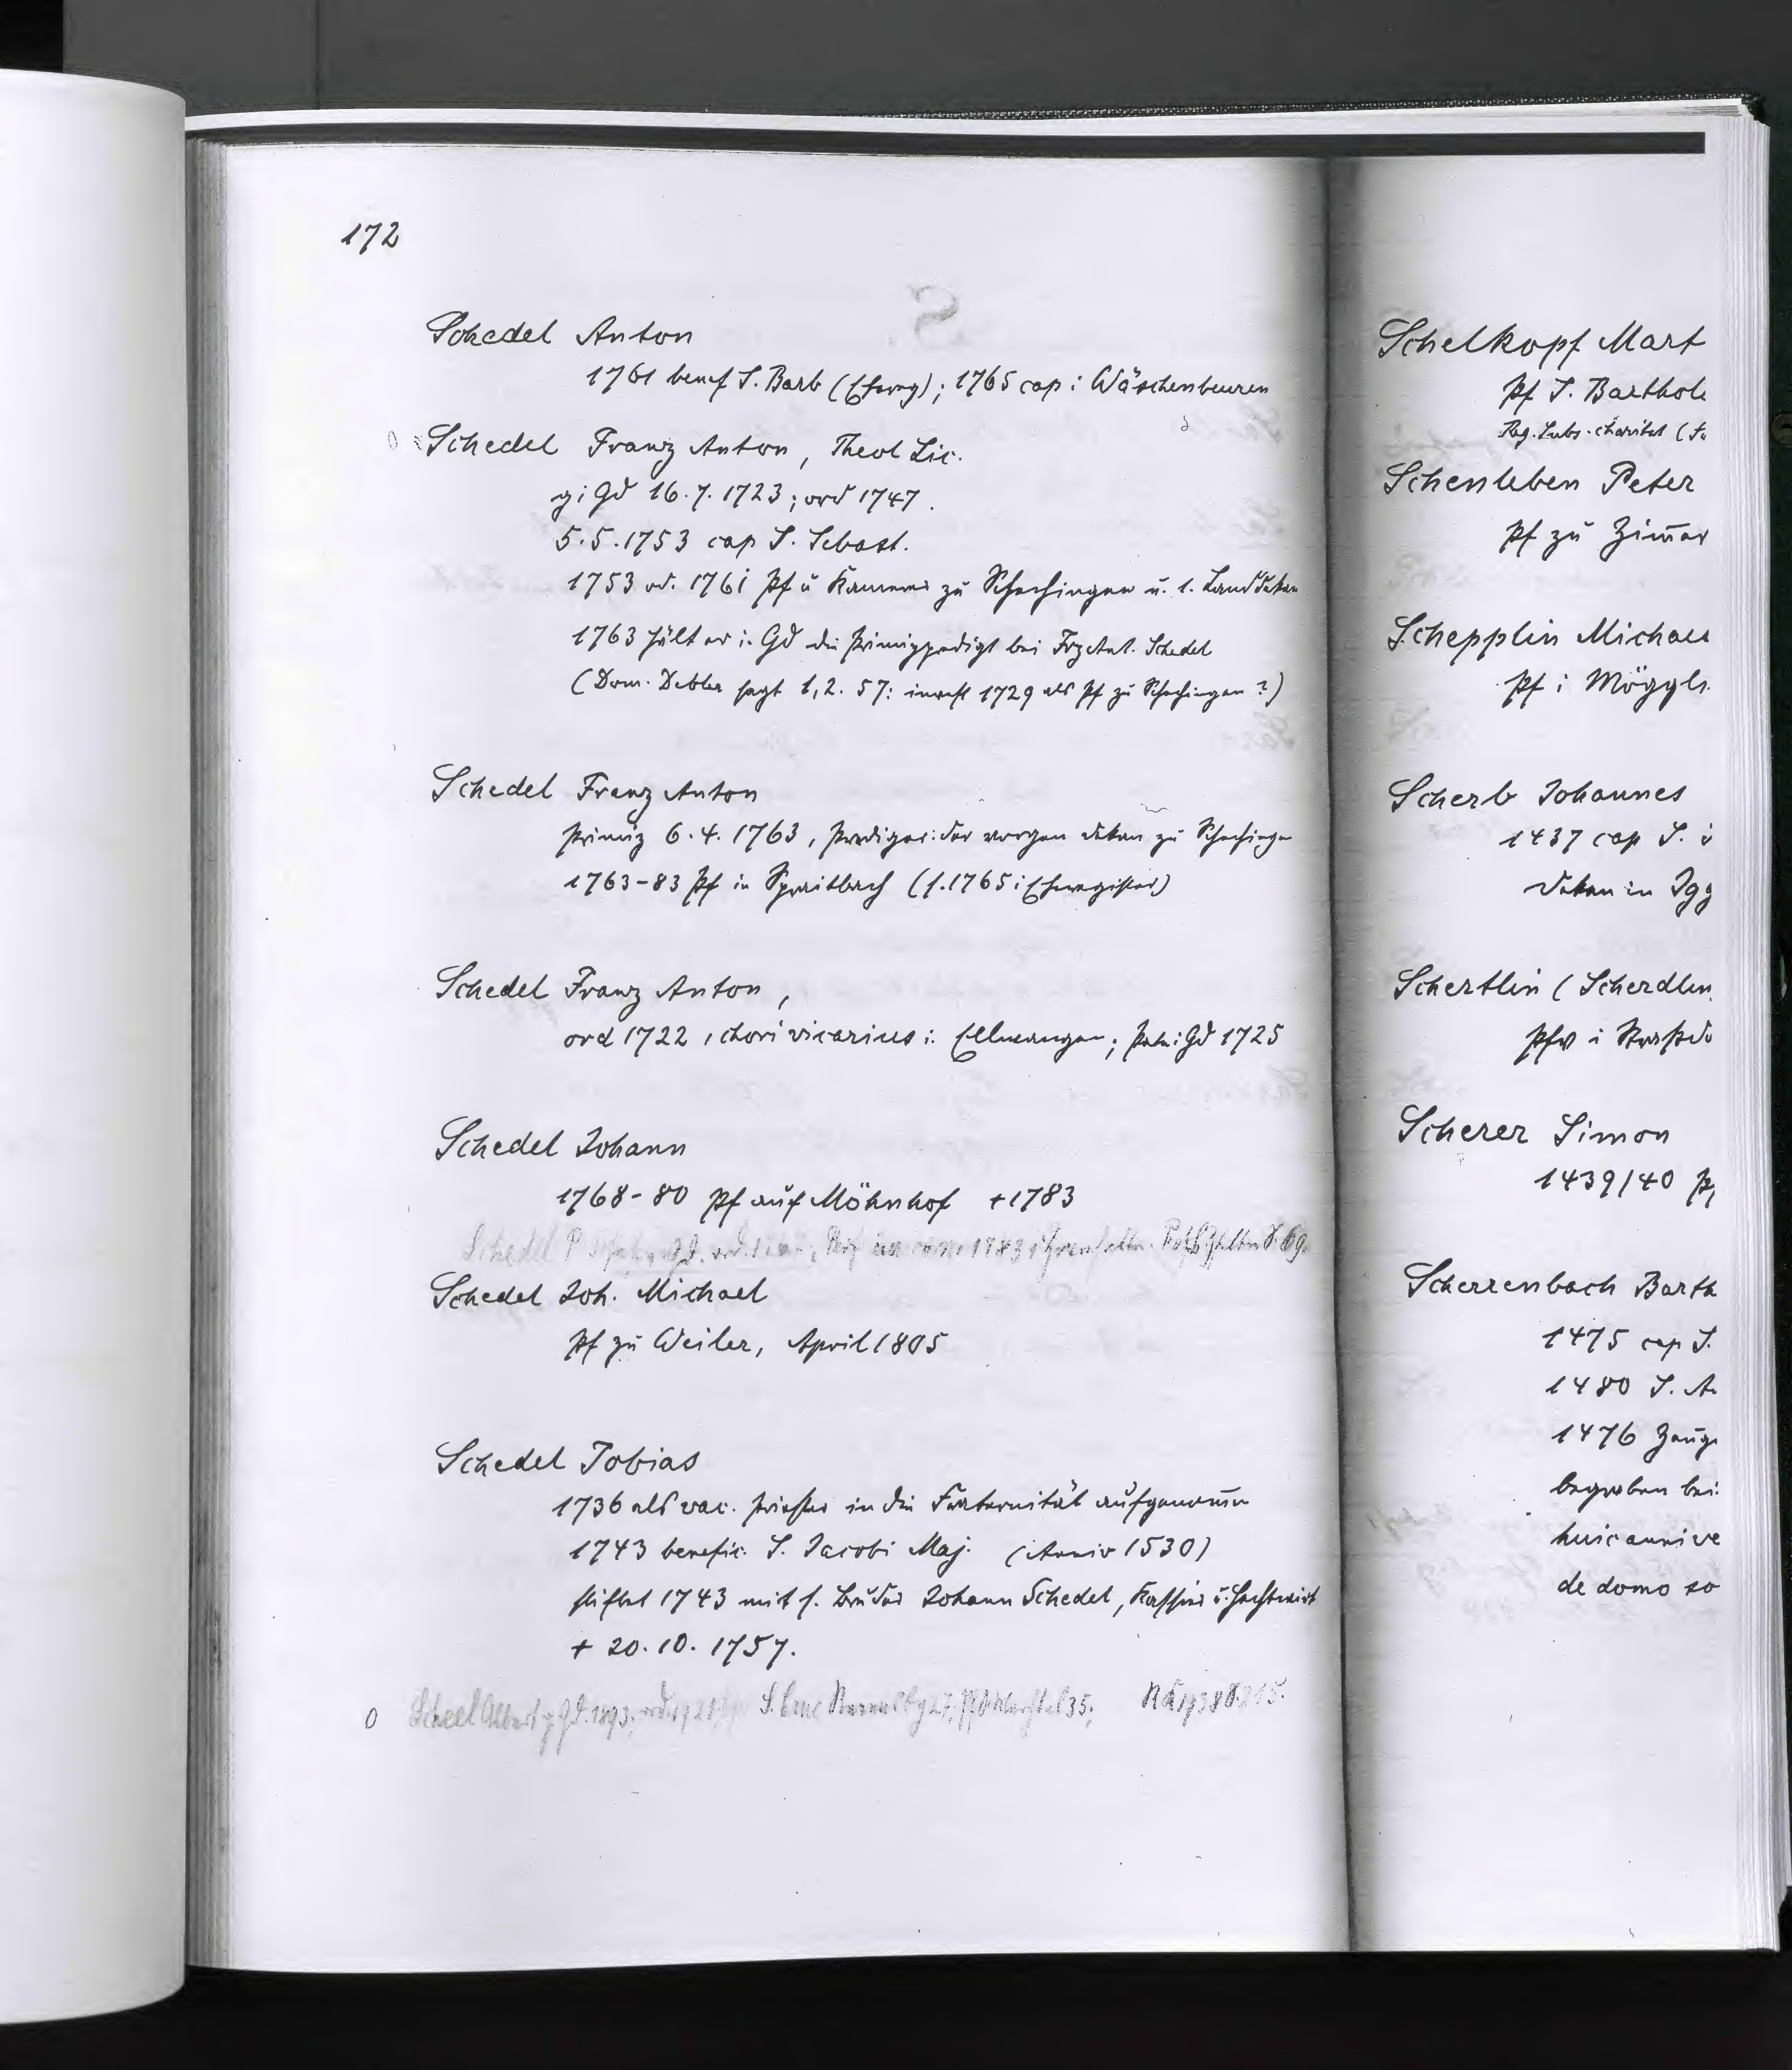 172
S
Schedel Anton
1761 benef S. Barb (Ehereg); 1765 cap i Wäschenbeuren
0 Schedel Franz Anton, Theol Lic.
g i Gd 16.7.1723; ord 1747.
5.5.1753 cap S. Sebast.
1753 od. 1761 Pf u Kammer zu Schechingen u. 1. Landdekan
1763 hält er i. Gd die Primizpredigt bei Frz Ant. Schedel
(Dom. Debler sagt 1,2. 57: invest 1729 als Pf zu Schechingen?)
Schedel Franz Anton
Primiz 6.4.1763, Prediger: der vorgen Dekan zu Schechingen
1763-83 Pf in Spraitbach (s. 1765 i Eheregister)
Schedel Franz Anton,
ord 1722, chorivicarius i. Ellwangen; Pate i Gd 1725
Schedel Johann
1768-80 Pf auf Möhnhof +1783
Schedel P
Schedel Joh. Michael
Pf zu Weiler, April 1805
Schedel Tobias
1736 als vac. Priester in die Fraternität aufgenom̄en
1743 benefic. S. Jacobi Maj. (Anniv 1530)
stiftet 1743 mit s. Bruder Johann Schedel, Kassier u. Hechtwirt
+ 20.10.1757.
0 Scheel Albert g Gd. 1893; ord. 1921
Schelkopf Mart
Pf S. Barthole
Reg. Subs. charitat (
Schenleben Peter
Pf zu Zim̄er
Schepplin Michae
Pf i Möggl
Scherb Johannes
1437 cap S.
Dekan in Igg
Schertlin (Scherdlin
Pfv i Straßdo
Scherer Simon
1439/40 P
Scherrenbach Barth
1475 cap S.
1480 S. A
1476 Zeuge
begraben bei
huic annive
de domo so